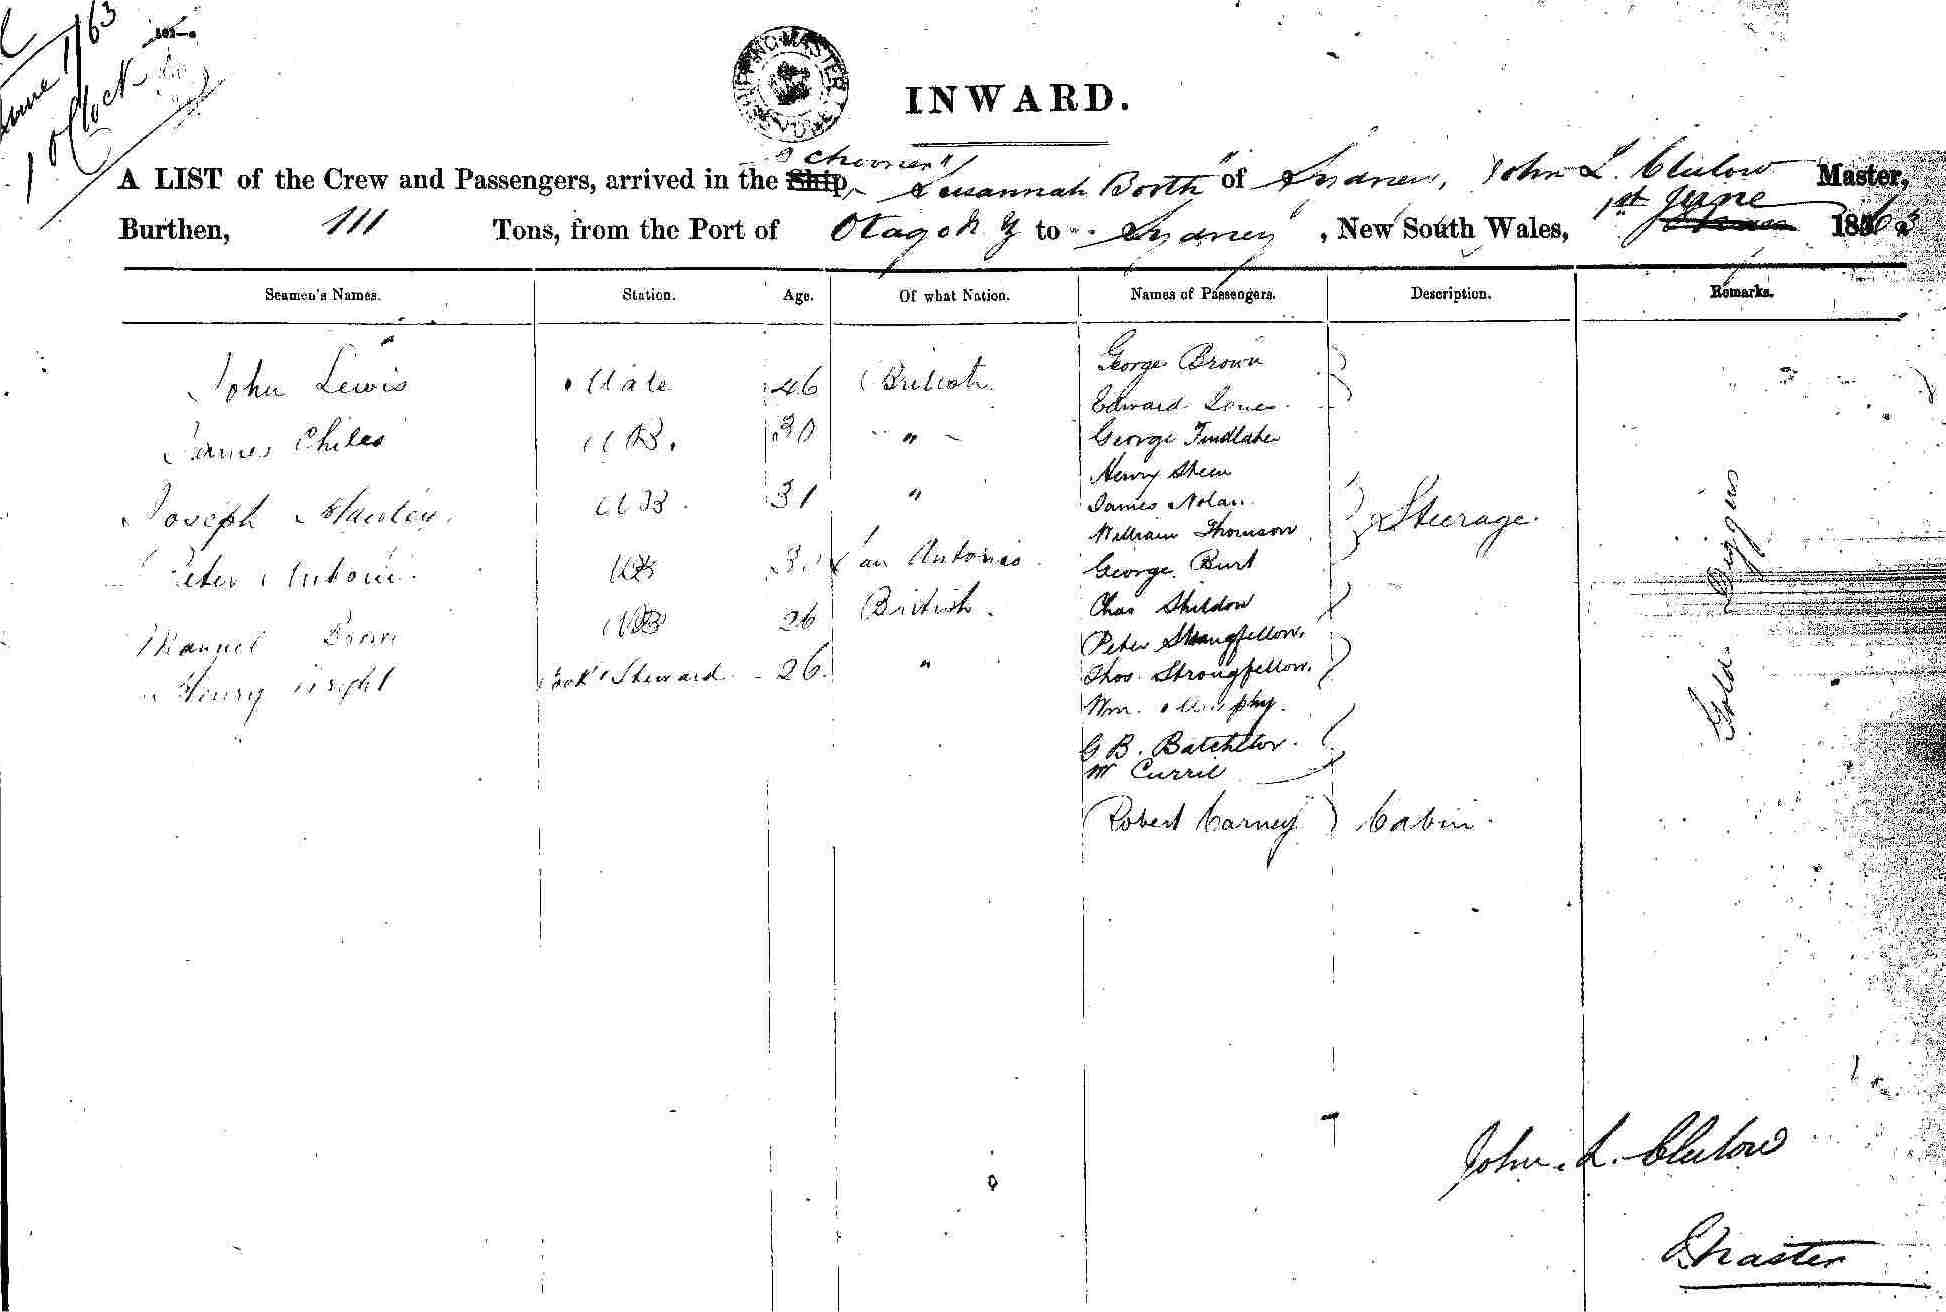 June 1/63
1 oClock
SHIPPING MASTER
INWARD.
Schooner
A LIST of the Crew and Passengers, arrived in the Ship, "Susannah Booth" of Sydney, John L. Clulow Master,
Burthen, 111 Tons, from the Port of Otago N Z to Sydney, New South Wales, 1st June 1863
Seamen's Names. Station. Age. Of what Nation. Names of Passengers. Description. Remarks.
John Lewis Mate 46 British
James Chiles AB. 30 "
Joseph AB. 31 "
Peter Antoni AB San Antonio
Manuel AB 26 British.
Henry Wright Cook & Steward 26 "
George Brown
Edward Jones
George Findlater
Henry Sheen
James Nolan
William Thomson
George Burt
Chas Sheldon
Peter Strangfellow.
Thos Strongfellow.
Wm. Murphy.
G B. Batchelor.
Mr Curril
Steerage.
Robert Carney Cabin.
Gold Diggers
John. L. Clulow
Master